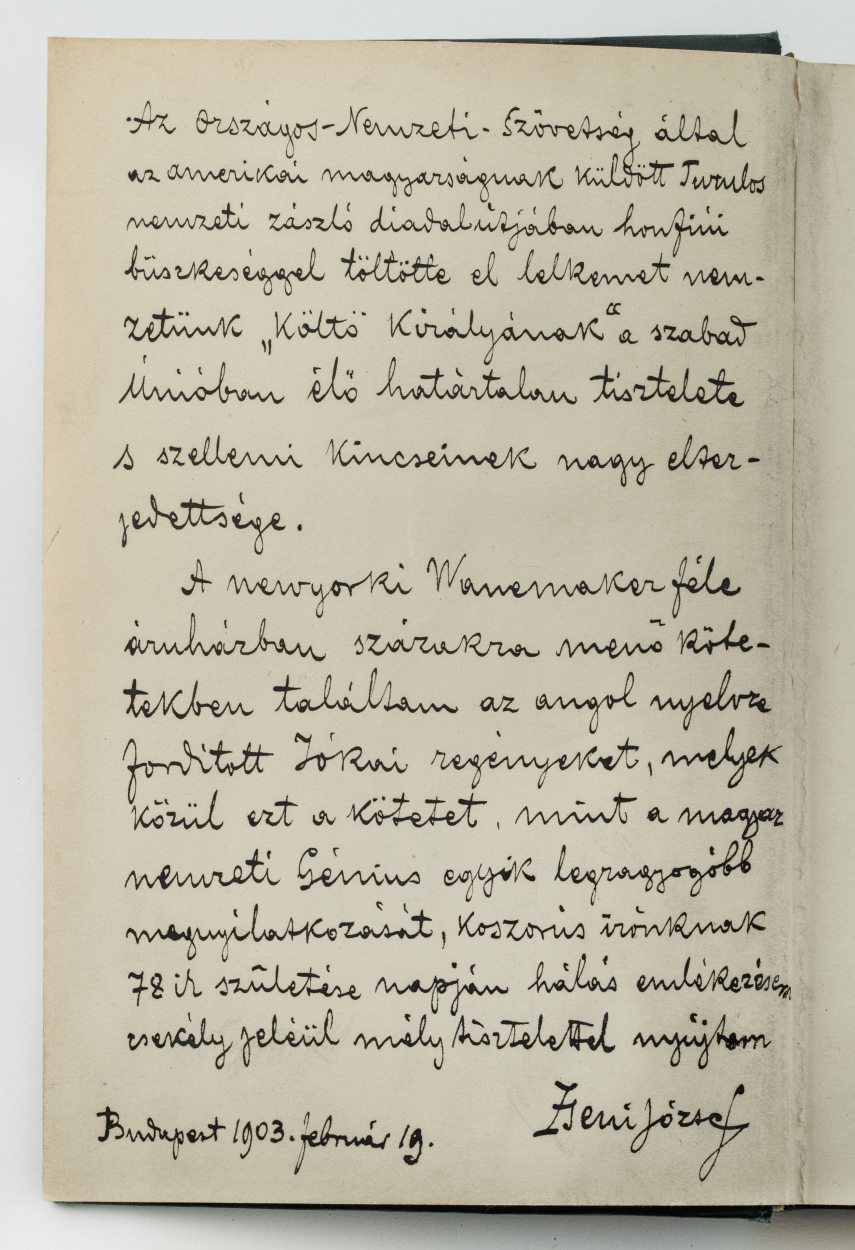 Az Országos-Nemzeti-Szövetség által
az amerikai magyarságnak küldött Turulos
nemzeti zászló diadalútjában honfiúi
büszkeséggel töltötte el lelkemet nem-
zetünk „Költö Királyának“ a szabad
Únióban élő határtalan tisztelete
s szellemi kincseinek nagy elter-
jedettsége.
A newyorki Wanemaker féle
áruházban százakra menő köte-
tekben találtam az angol nyelvre
fordított Jókai regényeket, melyek
közül ezt a kötetet, mint a magyar
nemzeti Génius egyik legragyogóbb
megnyilatkozását, koszorús írónknak
78 ik születése napján hálás emlékezésem
csekély jeléül mély tisztelettel nyújtom
Zseni József
Budapest 1903. február 19.